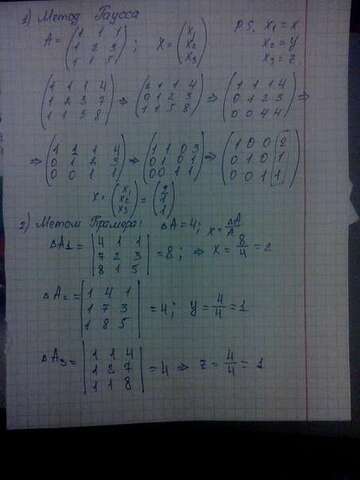 1) Метод Гаусса P.S. x₁ = x
A = (1 1 1; 1 2 3; 1 1 5); X = (x₁; x₂; x₃) x₂ = y
x₃ = z
(1 1 1 4; 1 2 3 7; 1 1 5 8) ⇒ (1 1 1 4; 0 1 2 3; 1 1 5 8) ⇒ (1 1 1 4; 0 1 2 3; 0 0 4 4) ⇒
⇒ (1 1 1 4; 0 1 2 3; 0 0 1 1) ⇒ (1 1 0 3; 0 1 0 1; 0 0 1 1) ⇒ (1 0 0 2; 0 1 0 1; 0 0 1 1)
X = (x₁; x₂; x₃) = (2; 1; 1)
2) Метом Крамера: ΔA = 4; x = ΔA/A
ΔA₁ = |4 1 1; 7 2 3; 8 1 5| = 8; ⇒ x = 8/4 = 2
ΔA₂ = |1 4 1; 1 7 3; 1 8 5| = 4; y = 4/4 = 1
ΔA₃ = |1 1 4; 1 2 7; 1 1 8| = 4 ⇒ z = 4/4 = 1